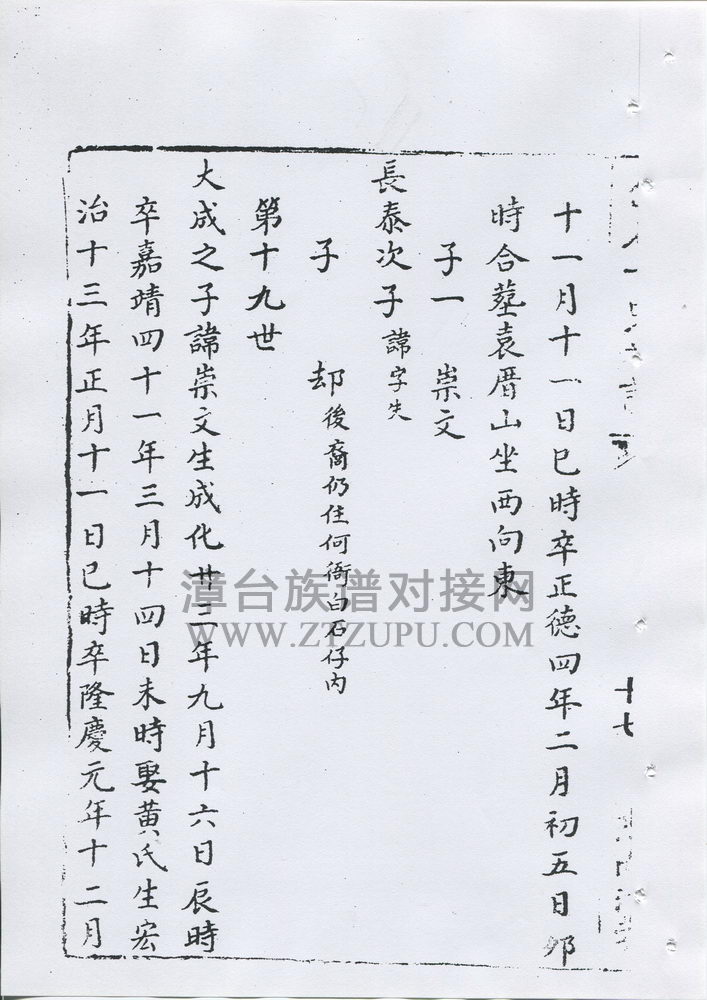 十一月十一日巳時卒正德四年二月初五日卯
時合塟袁厝山坐西向東
子一　崇文
長泰次子諱字失
子　却後裔仍住何衙白石仔内
第十九世
大成之子諱崇文生成化廿三年九月十六日辰時
卒嘉靖四十一年三月十四日未時娶黃氏生宏
治十三年正月十一日巳時卒隆慶元年十二月
十七
漳台族谱对接网
WWW.ZTZUPU.COM